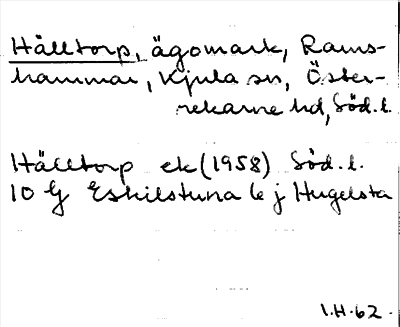 Hälltorp, ägomark, Rams-
hammar, Kjula sn, Öster-
rekarne hd, Söd. l.
Hälltorp ek (1958) Söd. l.
10 G Eskilstuna 6 j Hugelsta
I.H. 62.